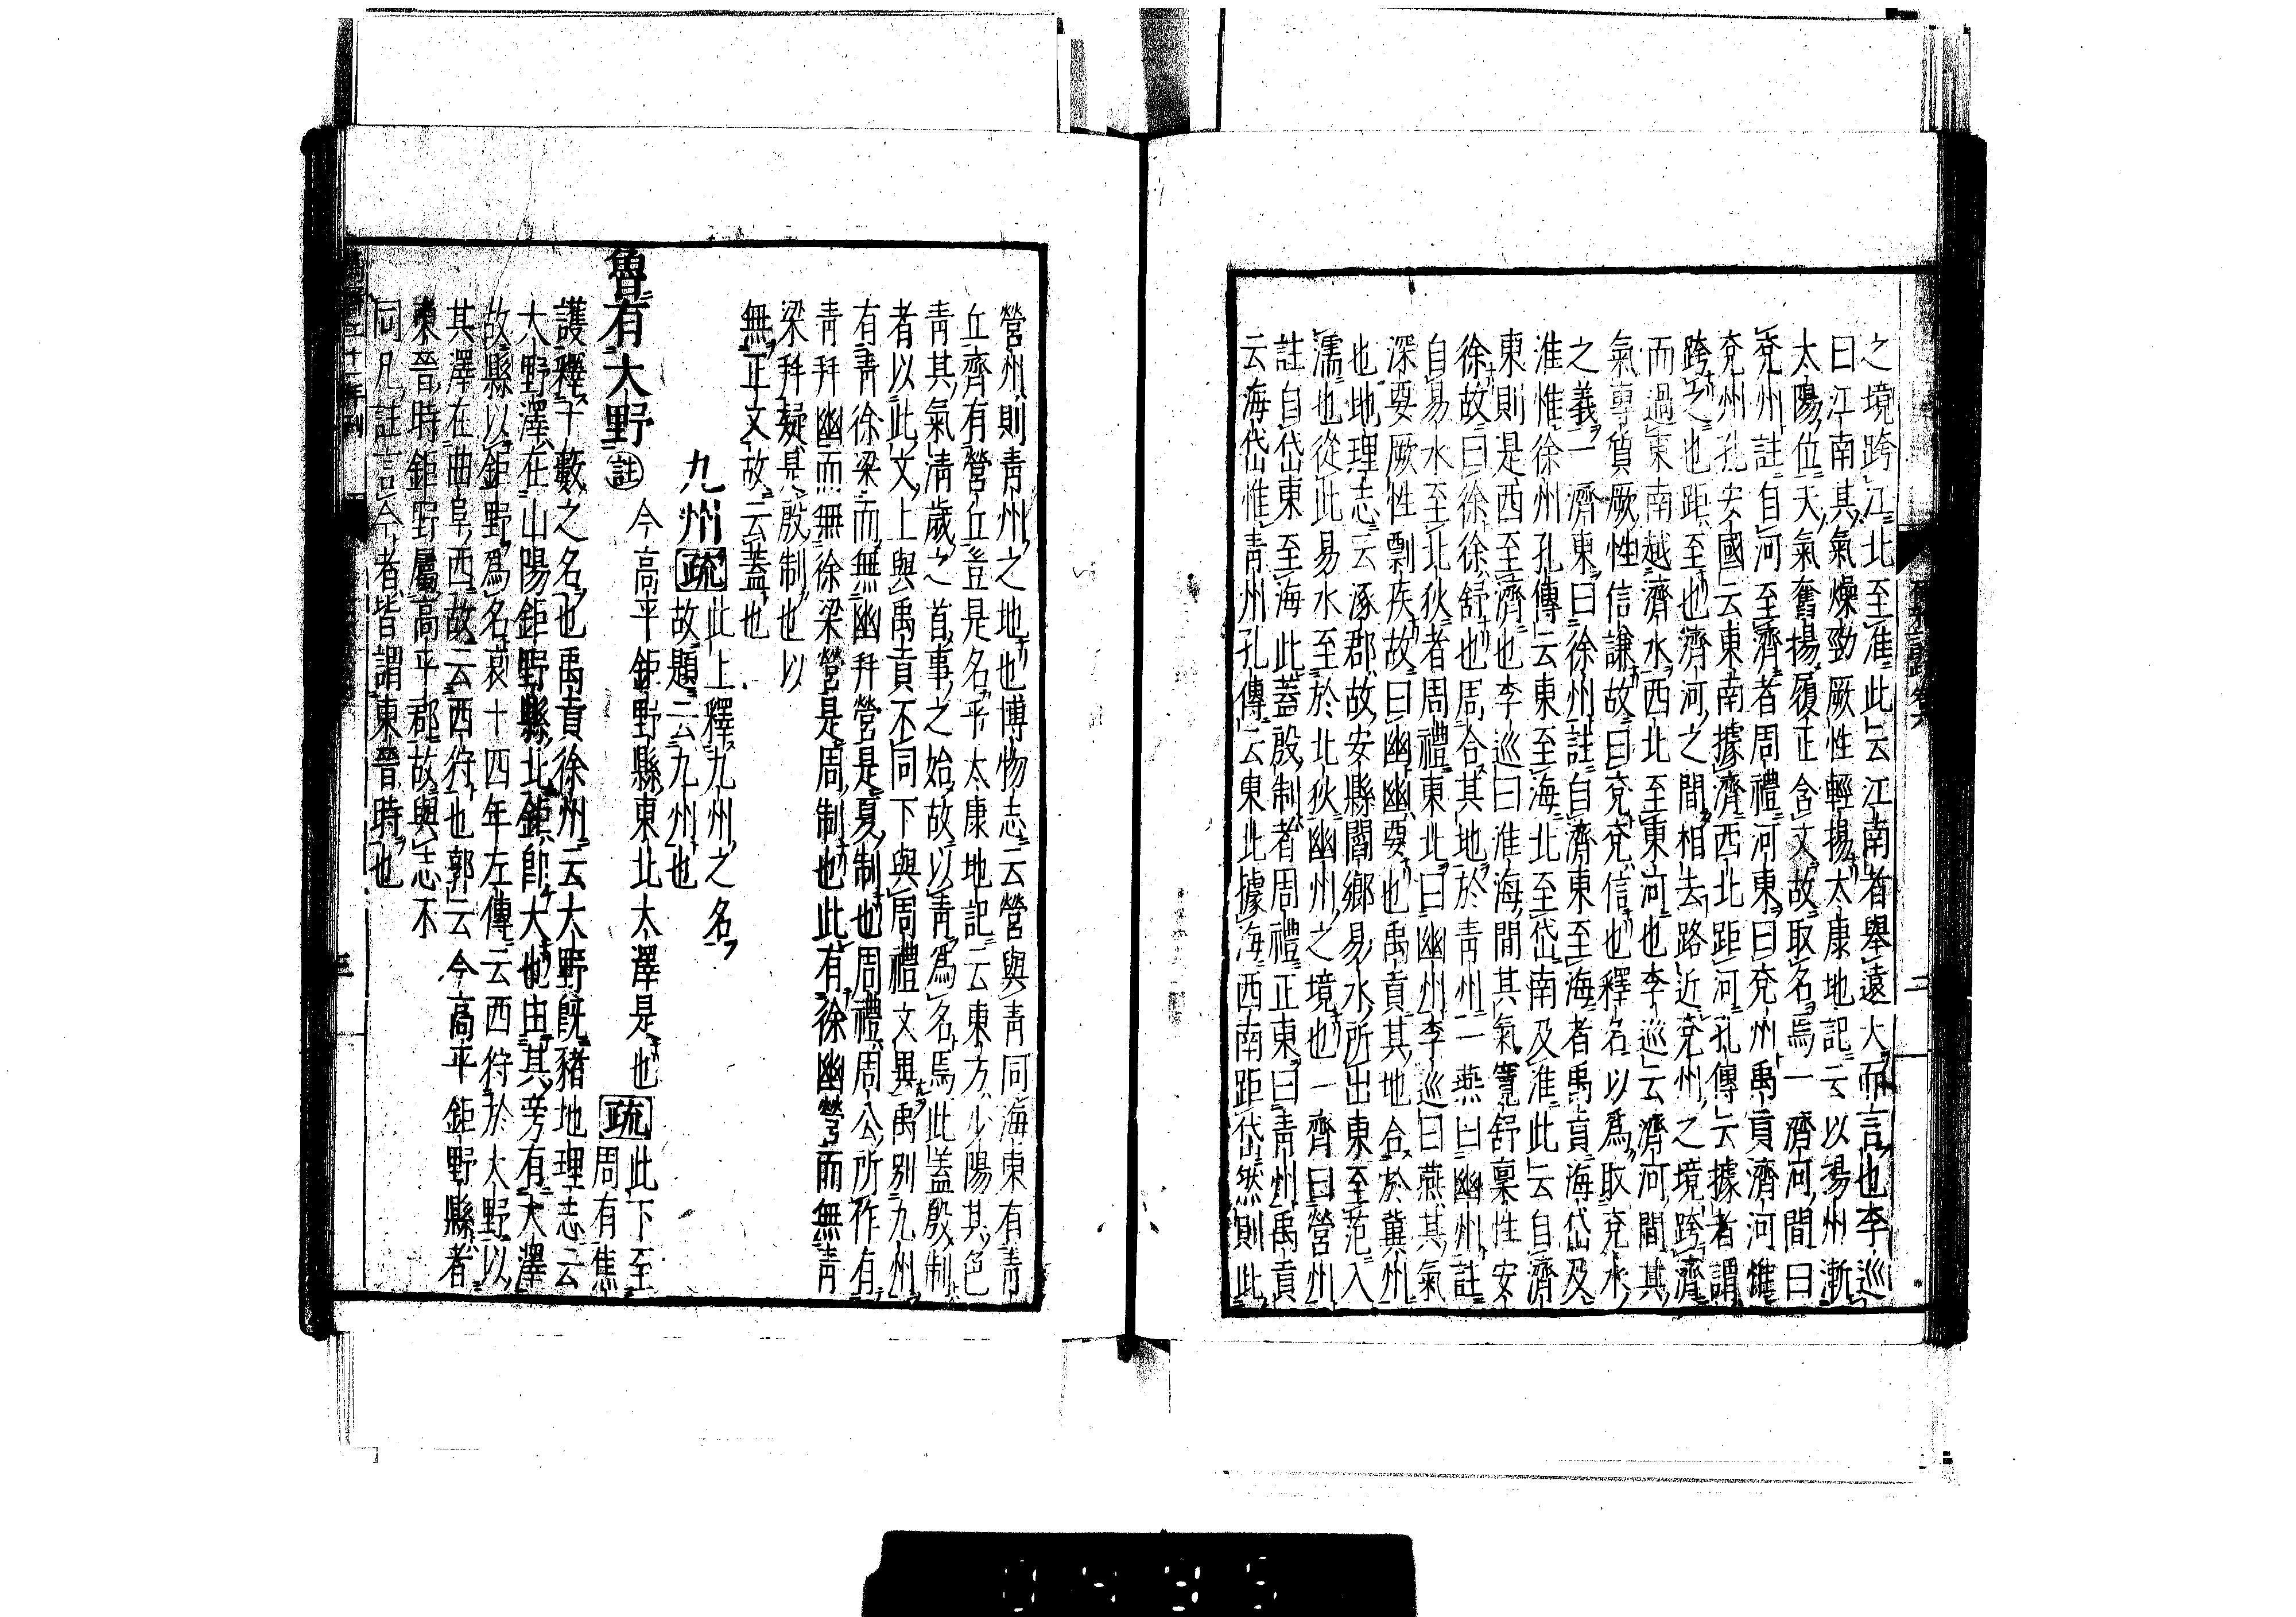 之境跨江北至淮此云江南者舉遠大而言也李巡
曰江南其氣燥勁厥性輕揚太康地記云以揚州漸
太陽位天氣奮揚履正含文故取名焉一濟河間曰
兗州註自河至濟者周禮河東曰兗州禹貢濟河惟
兗州孔安國云東南據濟西北距河孔傳云據者謂
跨之也距至也濟河之間相去路近兗州之境跨濟
而過東南越濟水西北至東河也李巡云濟河間其
氣專質厥性信謙故曰兗兗信也釋名以為取兗水
之義一濟東曰徐州註自濟東至海者禹貢海岱及
淮惟徐州孔傳云東至海北至岱南及淮此云自濟
東則是西至濟也李巡曰淮海間其氣寬舒稟性安
徐故曰徐徐舒也周合其地於青州一燕曰幽州註
自易水至北狄者周禮東北曰幽州李巡曰燕其氣
深要厥性剽疾故曰幽幽要也禹貢其地合於冀州
也地理志云涿郡故安縣閻鄉易水所出東至范入
濡也從此易水至於北狄幽州之境也一齊曰營州
註自岱東至海此蓋殷制者周禮正東曰青州禹貢
云海岱惟青州孔傳云東北據海西南距岱然則此
營州則青州之地也博物志云營與青同海東有青
丘齊有營丘豈是名乎太康地記云東方少陽其色
青其氣清歲之首事之始故以青為名焉此蓋殷制
者以此文上與禹貢不同下與周禮文異禹別九州
有青徐梁而無幽幷營是夏制也周禮周公所作有
青幷幽而無徐梁營是周制也此有徐幽營而無青
梁幷疑是殷制也以
無正文故云蓋也
九州疏此上釋九州之名
故題云九州也
魯有大野註今高平鉅野縣東北大澤是也疏此下至
周有焦
護釋十藪之名也禹貢徐州云大野既豬地理志云
大野澤在山陽鉅野縣北鉅卽大也由其旁有大澤
故縣以鉅野爲名哀十四年左傳云西狩於大野以
其澤在曲阜西故云西狩也郭云今高平鉅野縣者
東晉時鉅野屬高平郡故與志不
同凡註言今者皆謂東晉時也